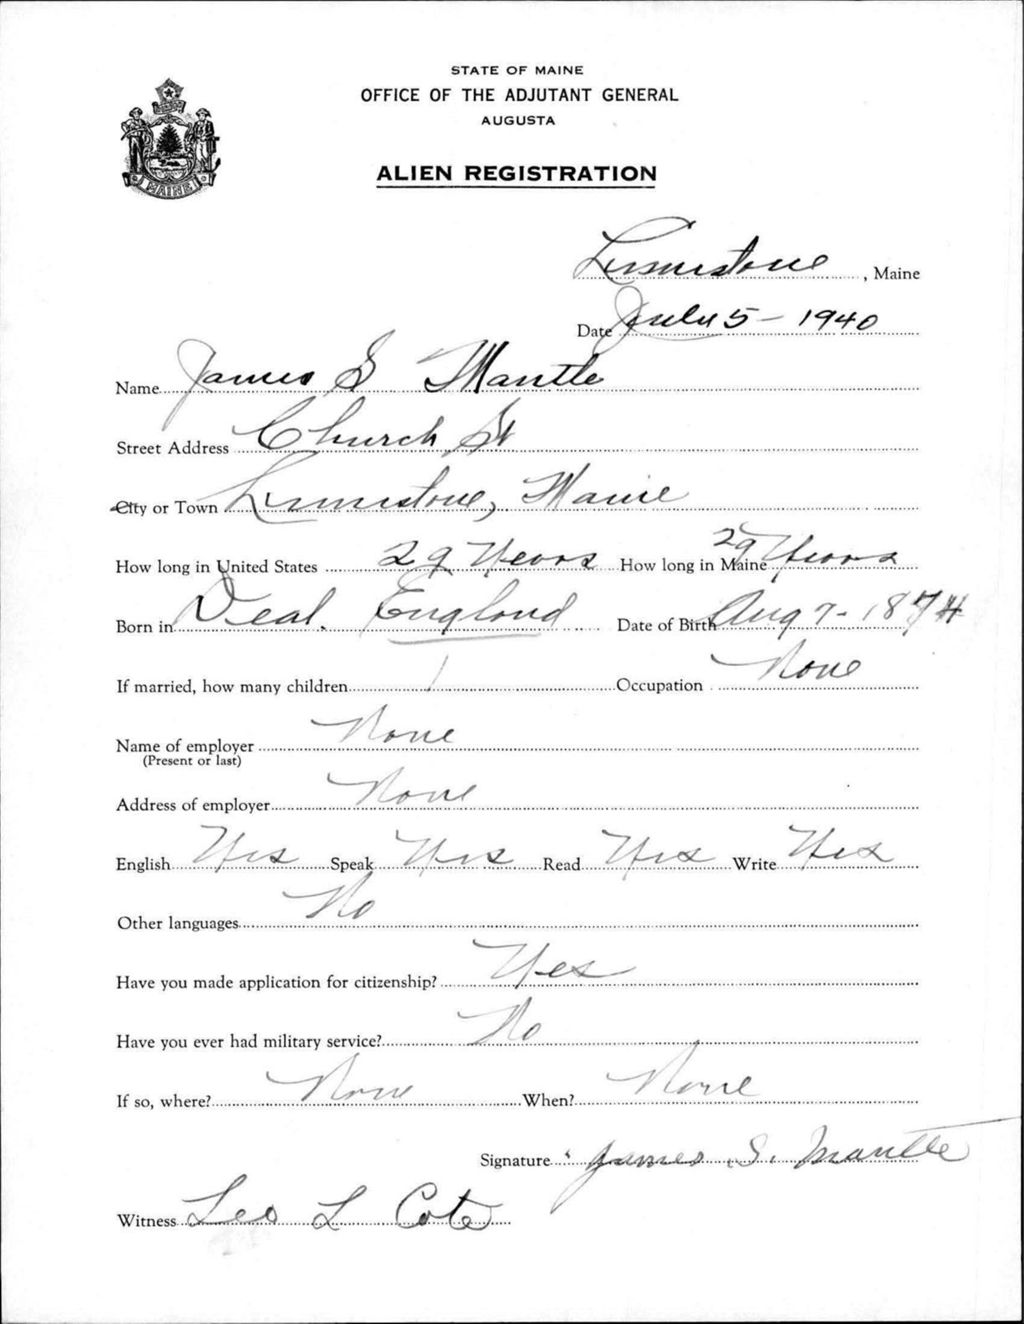 STATE OF MAINE
OFFICE OF THE ADJUTANT GENERAL
AUGUSTA
ALIEN REGISTRATION
MAINE
Limestone, Maine
Date July 5 - 1940
Name James S Mantle
Street Address Church St
City or Town Limestone, Maine
How long in United States 29 Years How long in Maine 29 Years
Born in Deal. England Date of Birth Aug 7 - 1874
If married, how many children 1 Occupation None
Name of employer None
(Present or last)
Address of employer None
English Yes Speak Yes Read Yes Write Yes
Other languages No
Have you made application for citizenship? Yes
Have you ever had military service? No
If so, where? None When? None
Signature James S. Mantle
Witness Leo L Cote